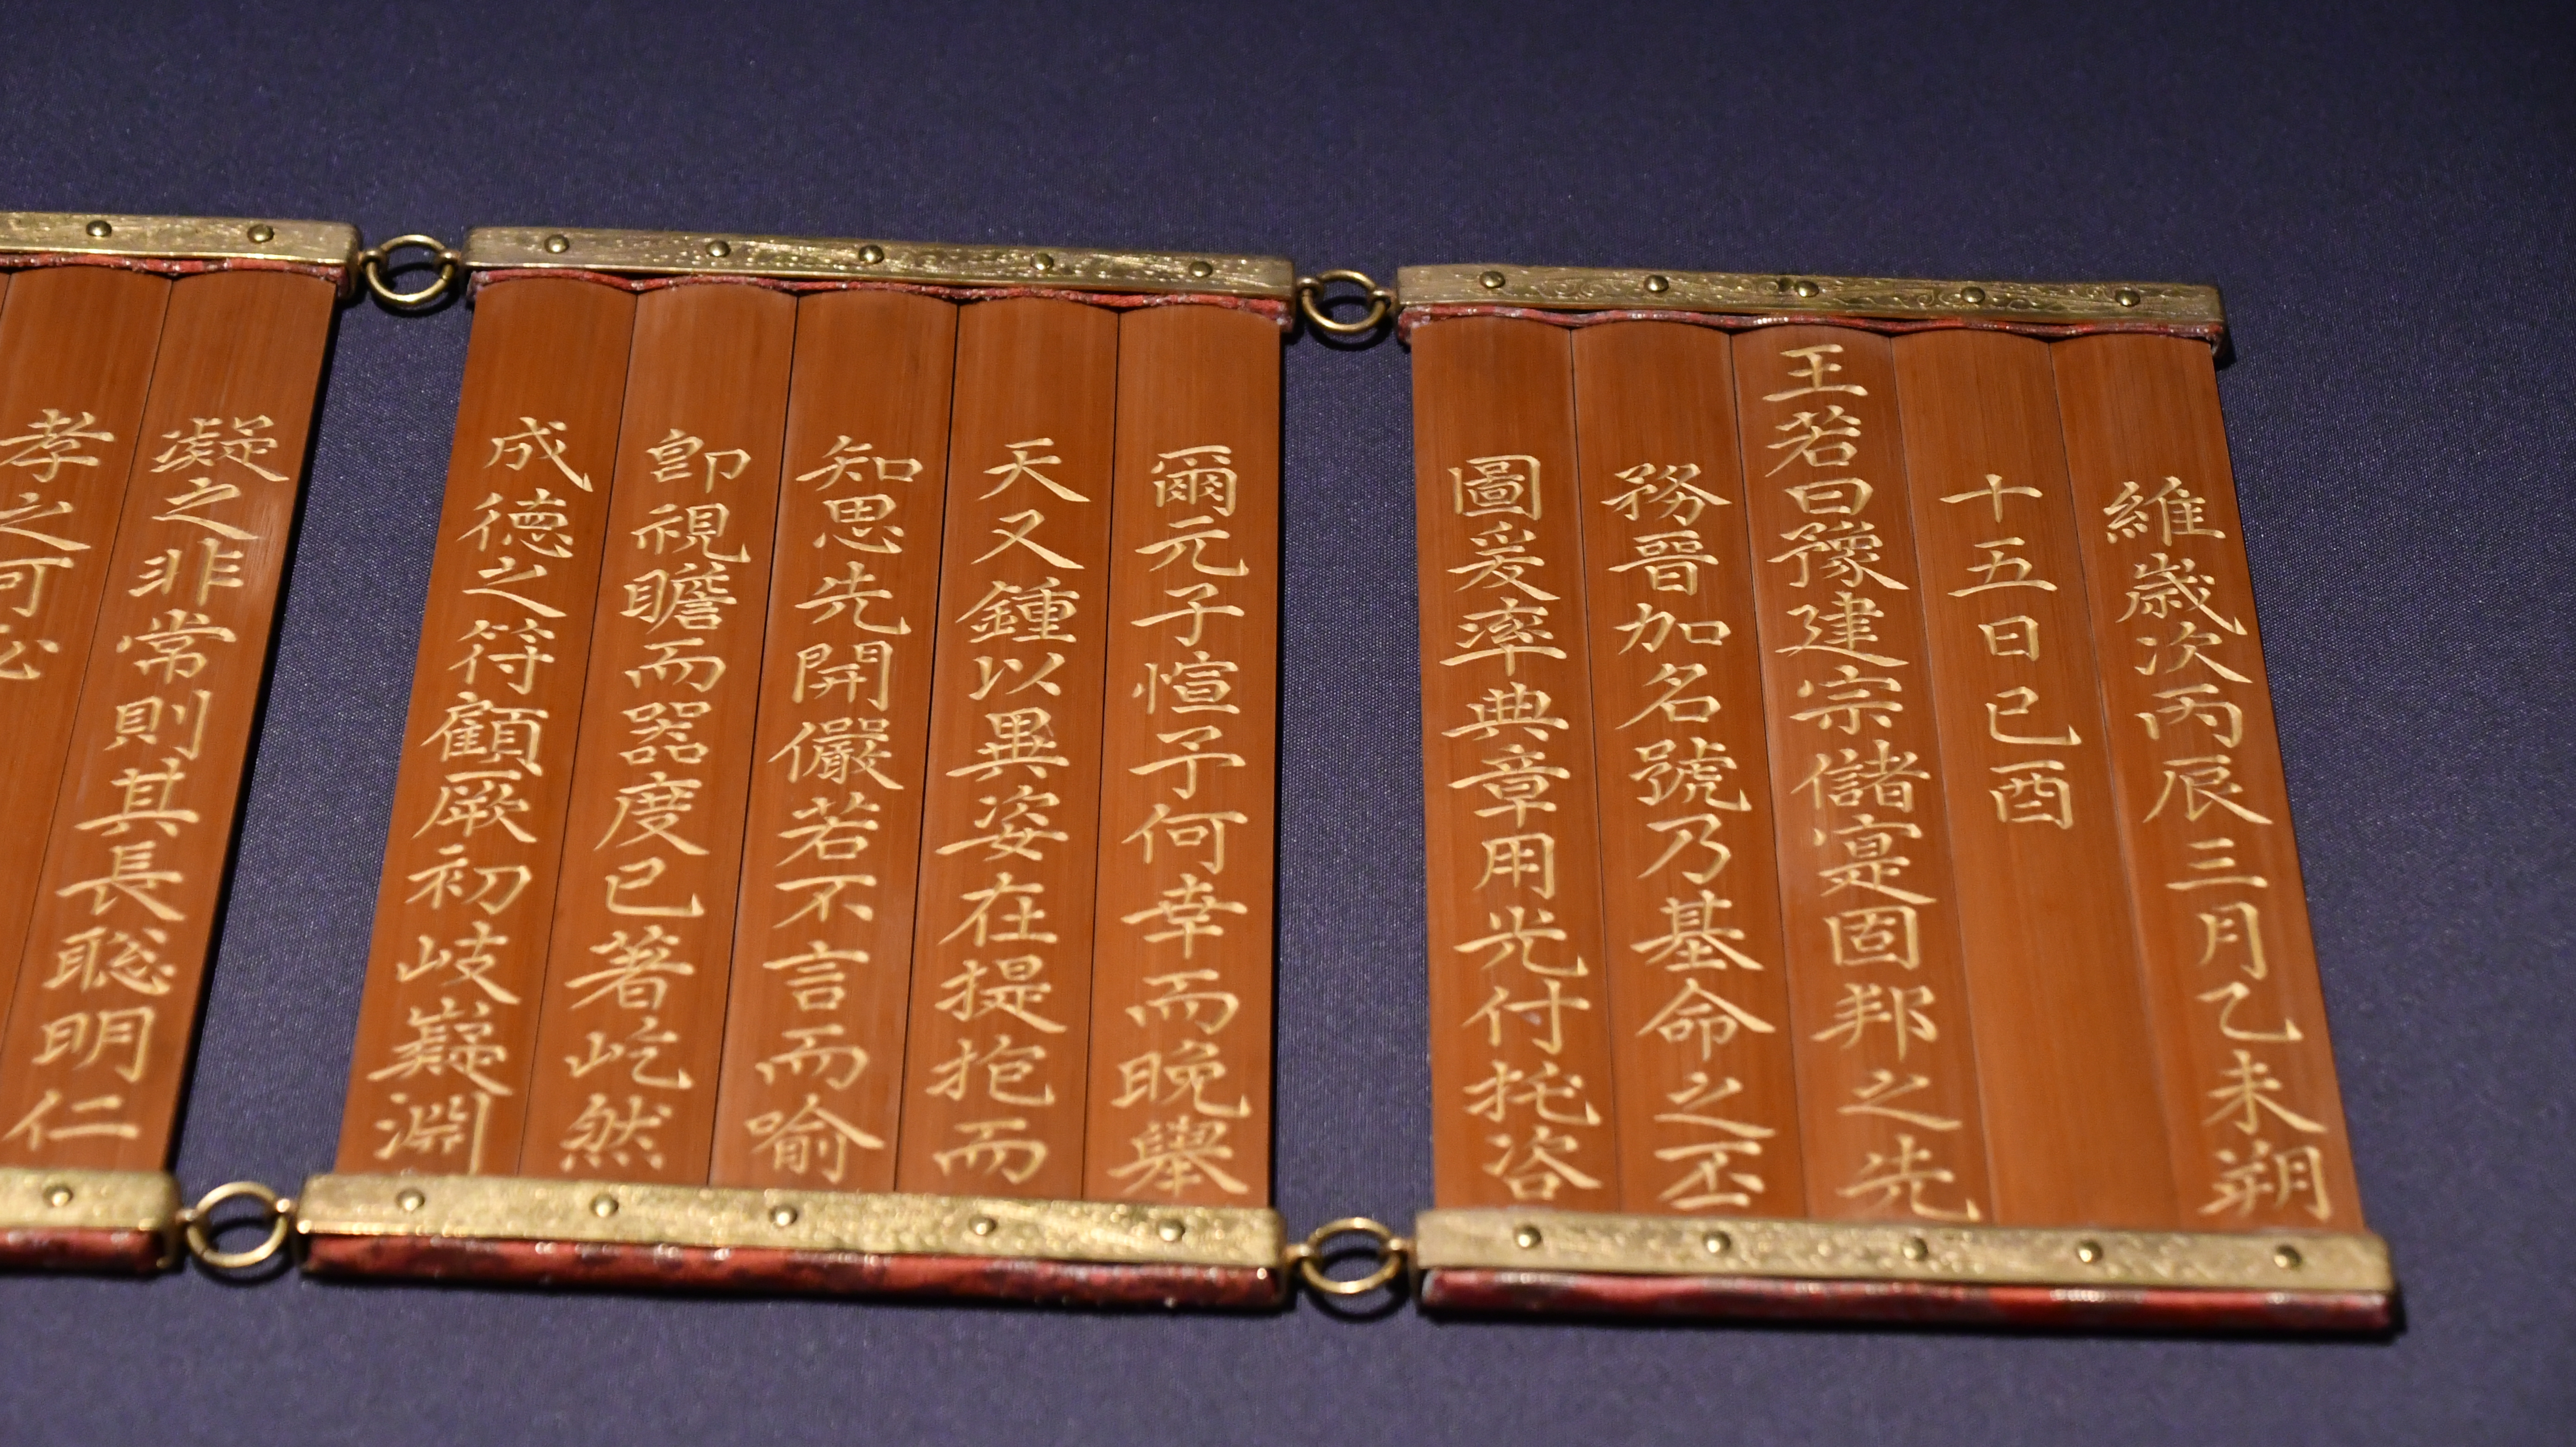 維歲次丙辰三月乙未朔
十五日己酉
王若曰豫建宗儲寔固邦之先
務晉加名號乃基命之丕
圖爰率典章用光付托咨
爾元子愃予何幸而晩擧
天又鍾以異姿在提抱而
知思先開儼若不言而喻
卽視瞻而器度已著屹然
成德之符顧厥初岐嶷淵
凝之非常則其長聡明仁
孝之可